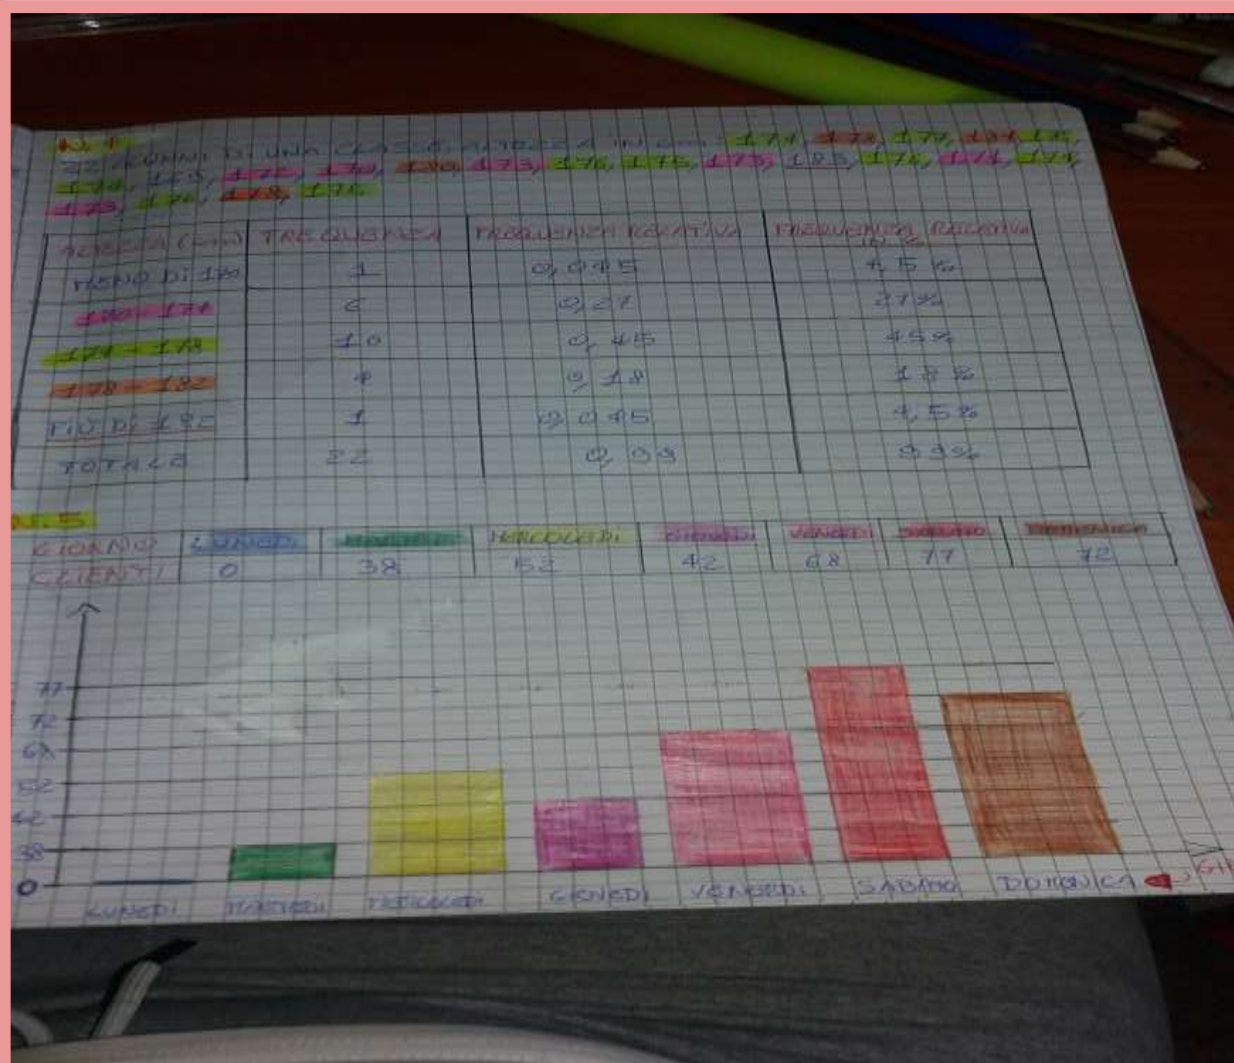 N.4
22 ALUNNI DI UNA CLASSE, ALTEZZA IN cm: 174, 178, 177, 181, 175,
174, 168, 172, 170, 180, 173, 176, 175, 173, 183, 176, 171, 174,
173, 176, 178, 176
ALTEZZA (cm) FREQUENZA FREQUENZA RELATIVA FREQUENZA RELATIVA
IN %
MENO DI 170 1 0,045 4,5%
170-174 6 0,27 27%
174-178 10 0,45 45%
178-182 4 0,18 18%
PIÙ DI 182 1 0,045 4,5%
TOTALE 22 0,99 99%
N.5
GIORNO LUNEDI MARTEDI MERCOLEDI GIOVEDI VENERDI SABATO DOMENICA
CLIENTI 0 38 52 42 68 77 72
77
72
68
52
42
38
0
LUNEDI MARTEDI MERCOLEDI VENERDI SABATO DOMENICA